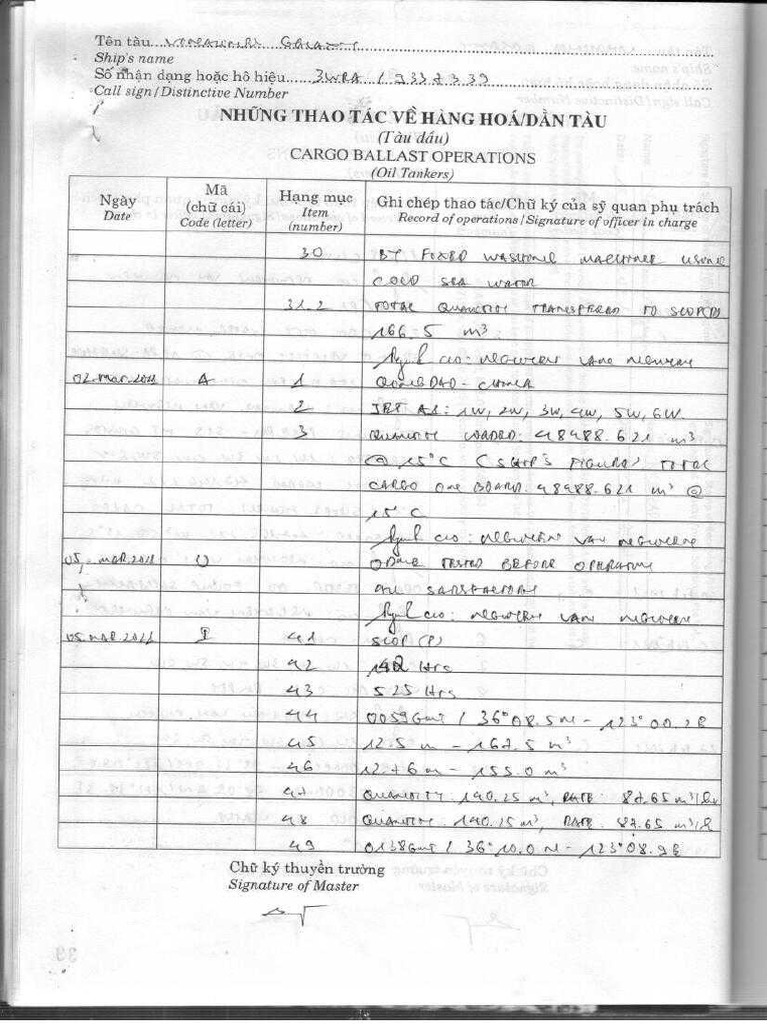 Tên tàu
Ship's name
Số nhận dạng hoặc hô hiệu 3WRA / 9337339
Call sign / Distinctive Number
NHỮNG THAO TÁC VỀ HÀNG HOÁ/DẰN TÀU
(Tàu dầu)
CARGO BALLAST OPERATIONS
(Oil Tankers)
Ngày Date Mã (chữ cái) Code (letter) Hạng mục Item (number) Ghi chép thao tác/Chữ ký của sỹ quan phụ trách Record of operations / Signature of officer in charge
30 BY FIXED WASHING MACHINES USING
COLD SEA WATER
31.2 TOTAL QUANTITY TRANSFERED TO SLOP(P)
166.5 m³
C/O: NGUYEN VAN NGUYEN
A 1 QINGDAO - CHINA
2 JET A1: 1W, 2W, 3W, 4W, 5W, 6W
3 QUANTITY LOADED: 48988.621 m³
@ 15°C (SHIP'S FIGURE) TOTAL
CARGO ON BOARD: 48988.621 m³ @
15°C
C/O: NGUYEN VAN NGUYEN
ODME TESTED BEFORE OPERATION
SATISFACTORY
C/O: NGUYEN VAN NGUYEN
41 SLOP (P)
42 Hrs
43 525 Hrs
44 0059 GMT / 36°08.5 N - 123°00.2 E
45 12.5 m - 167.5 m³
46 12.76 m - 155.0 m³
47 QUANTITY: 140.25 m³, RATE: 87.65 m³/hr
48 QUANTITY: 140.25 m³, RATE: 87.65 m³/h
49 0138 GMT / 36°10.0 N - 123°08.9 E
Chữ ký thuyền trưởng
Signature of Master